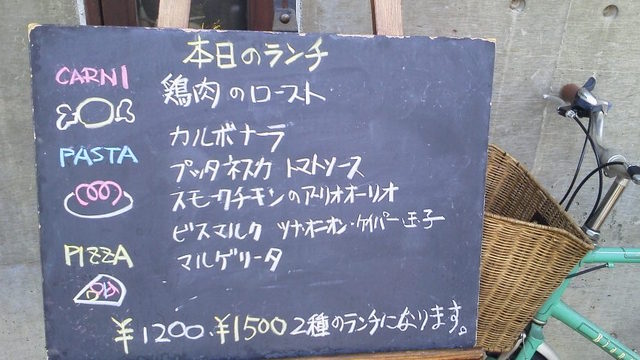 本日のランチ
CARNI
鶏肉のロースト
カルボナーラ
PASTA
プッタネスカ トマトソース
スモークチキンのアーリオオーリオ
ビスマルク ツナ・オニオン・ケイパー・玉子
PIZZA
マルゲリータ
¥1200.¥1500 2種のランチになります。